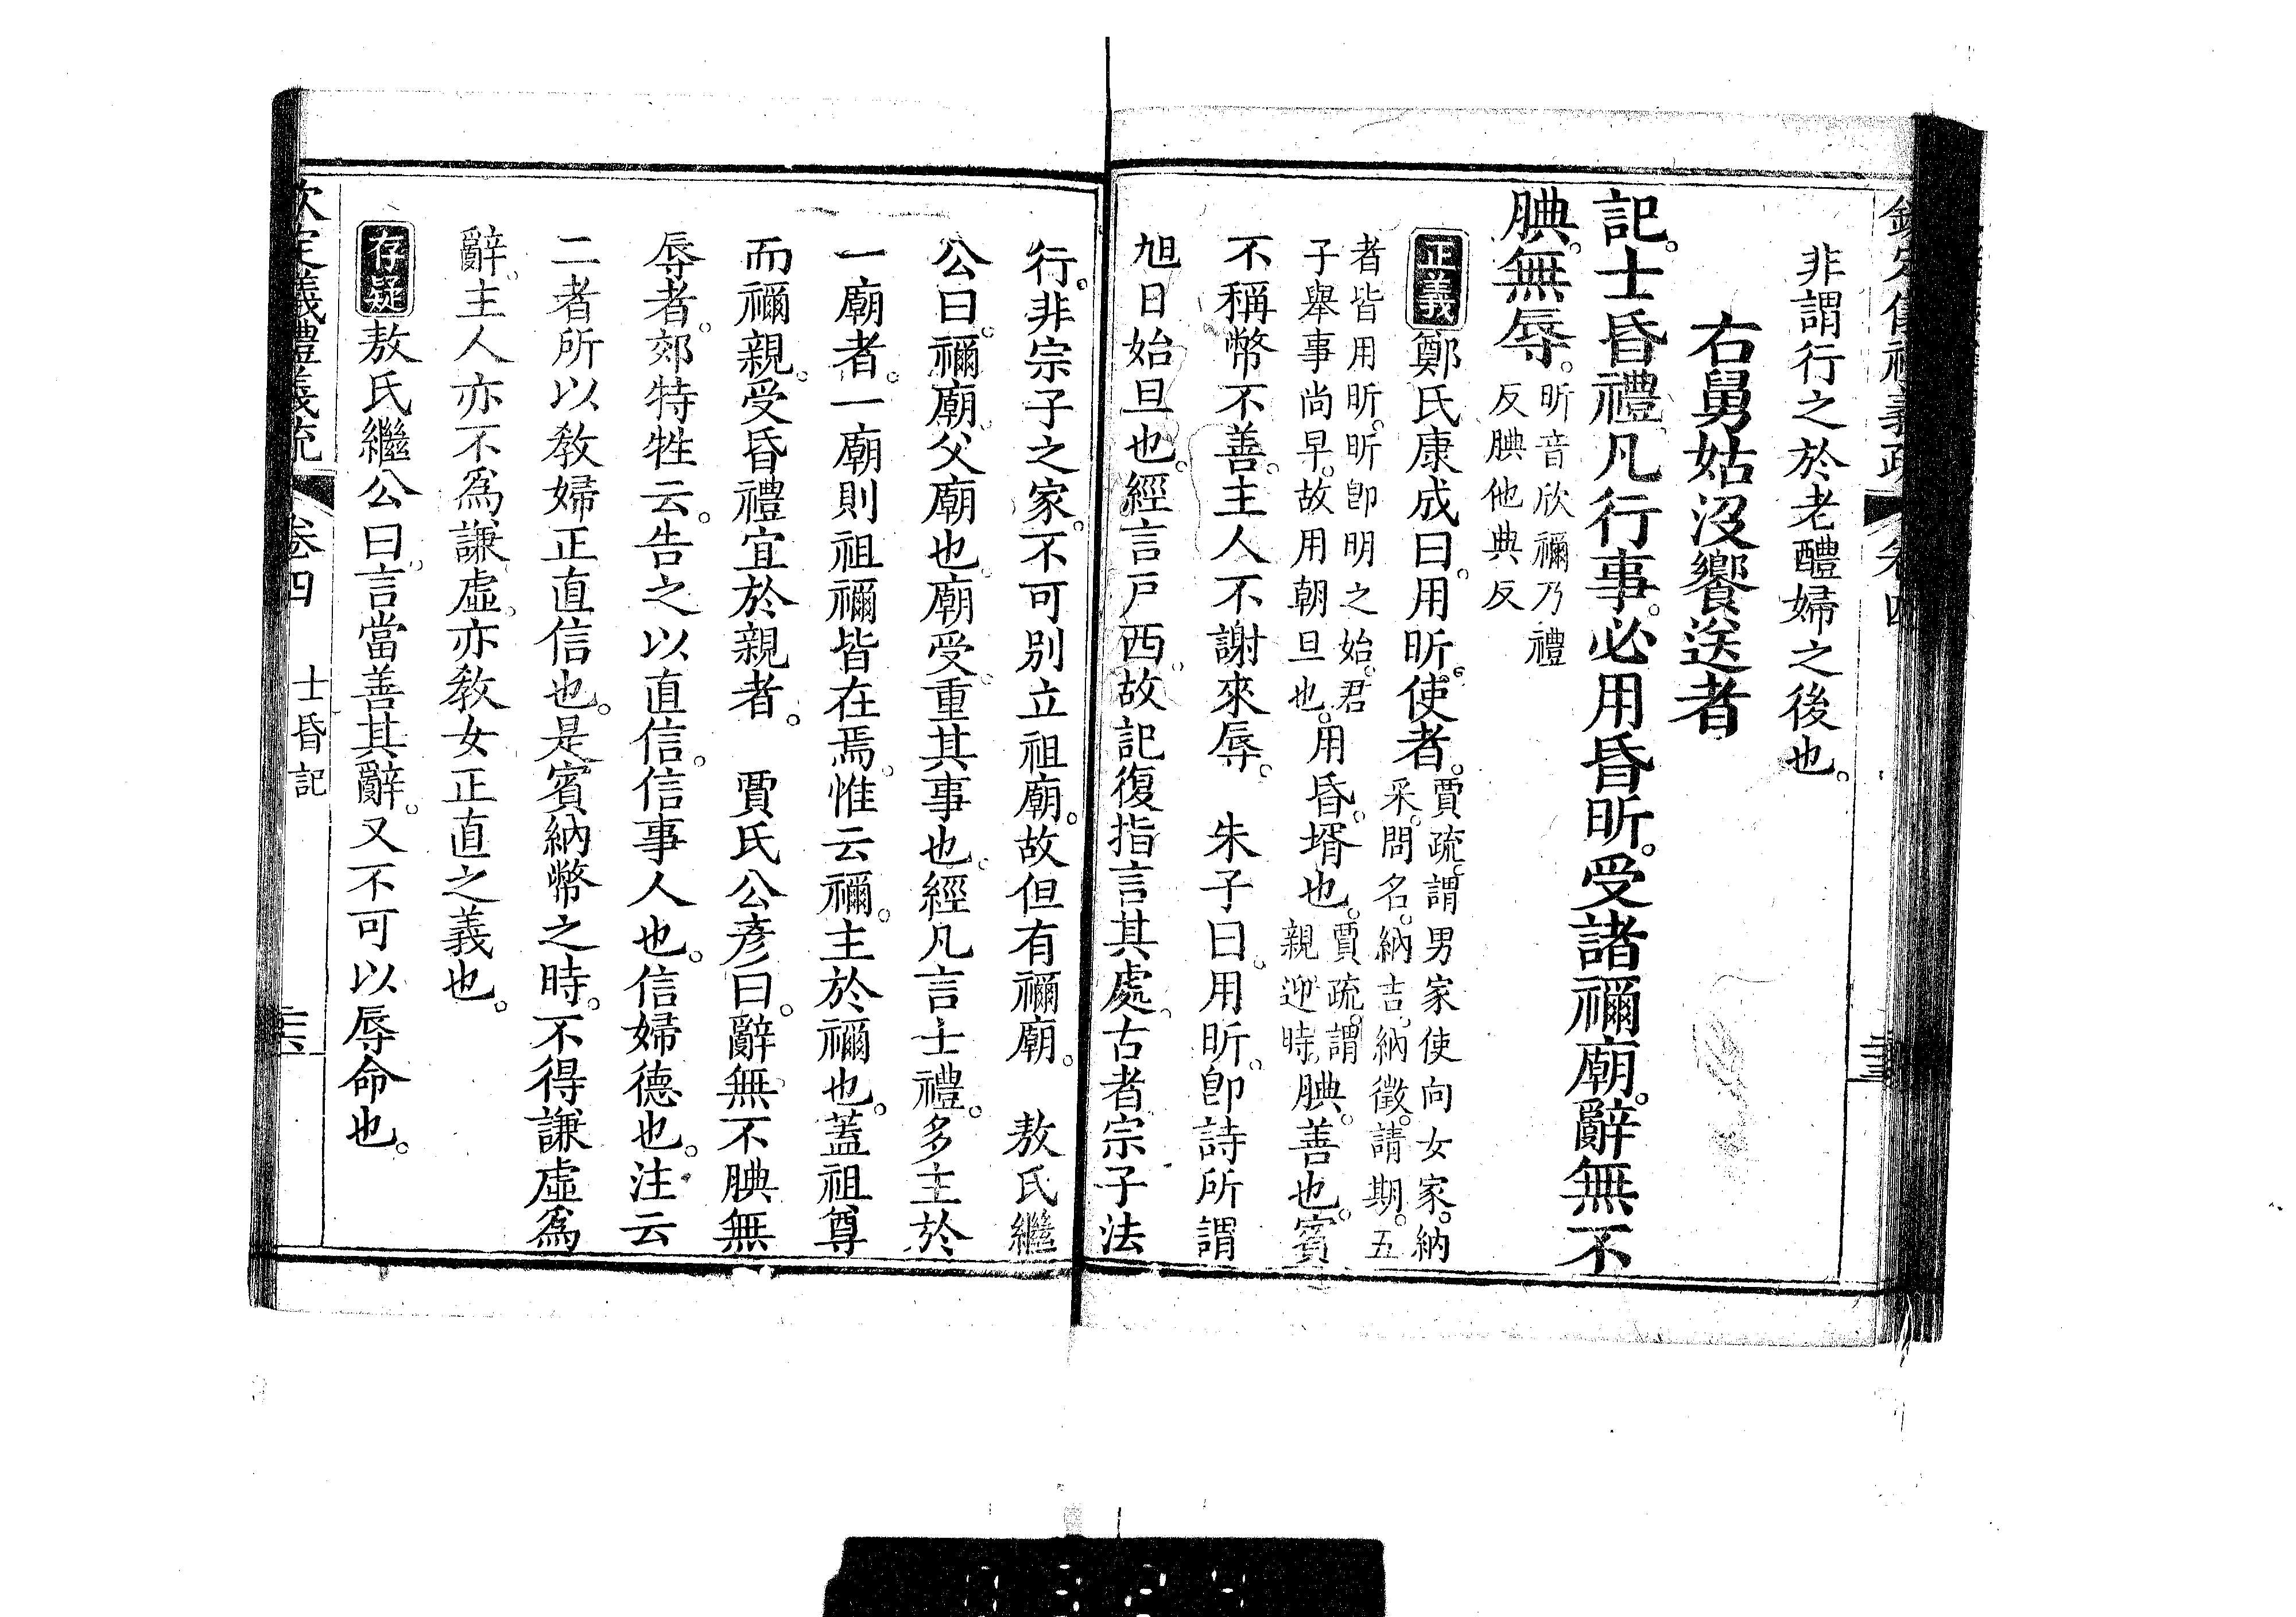 非謂行之於老醴婦之後也。
右舅姑沒饗送者
記。士昏禮。凡行事。必用昏昕。受諸禰廟。辭無不
腆。無辱。
昕音欣禰乃禮
反腆他典反
正義
鄭氏康成曰。用昕。使者。
賈疏。謂男家使向女家。納
采。問名。納吉。納徵。請期。五
者皆用昕。昕卽明之始。君
子舉事尚早。故用朝旦也。
用昏。壻也。
賈疏。謂
親迎時。
腆。善也。賓
不稱幣不善。主人不謝來辱。 朱子曰。用昕。卽詩所謂
旭日始旦也。經言戸西。故記復指言其處。古者宗子法
行。非宗子之家。不可別立祖廟。故但有禰廟。 敖氏繼
公曰。禰廟。父廟也。廟受。重其事也。經凡言士禮。多主於
一廟者。一廟則祖禰皆在焉。惟云禰。主於禰也。蓋祖尊
而禰親。受昏禮宜於親者。 賈氏公彥曰。辭無不腆無
辱者。郊特牲云。告之以直信。信事人也。信婦德也。注云
二者所以敎婦正直信也。是賓納幣之時。不得謙虛爲
辭。主人亦不爲謙虛。亦敎女正直之義也。
存疑
敖氏繼公曰。言當善其辭。又不可以辱命也。
欽定義禮義疏
卷四
士昏記